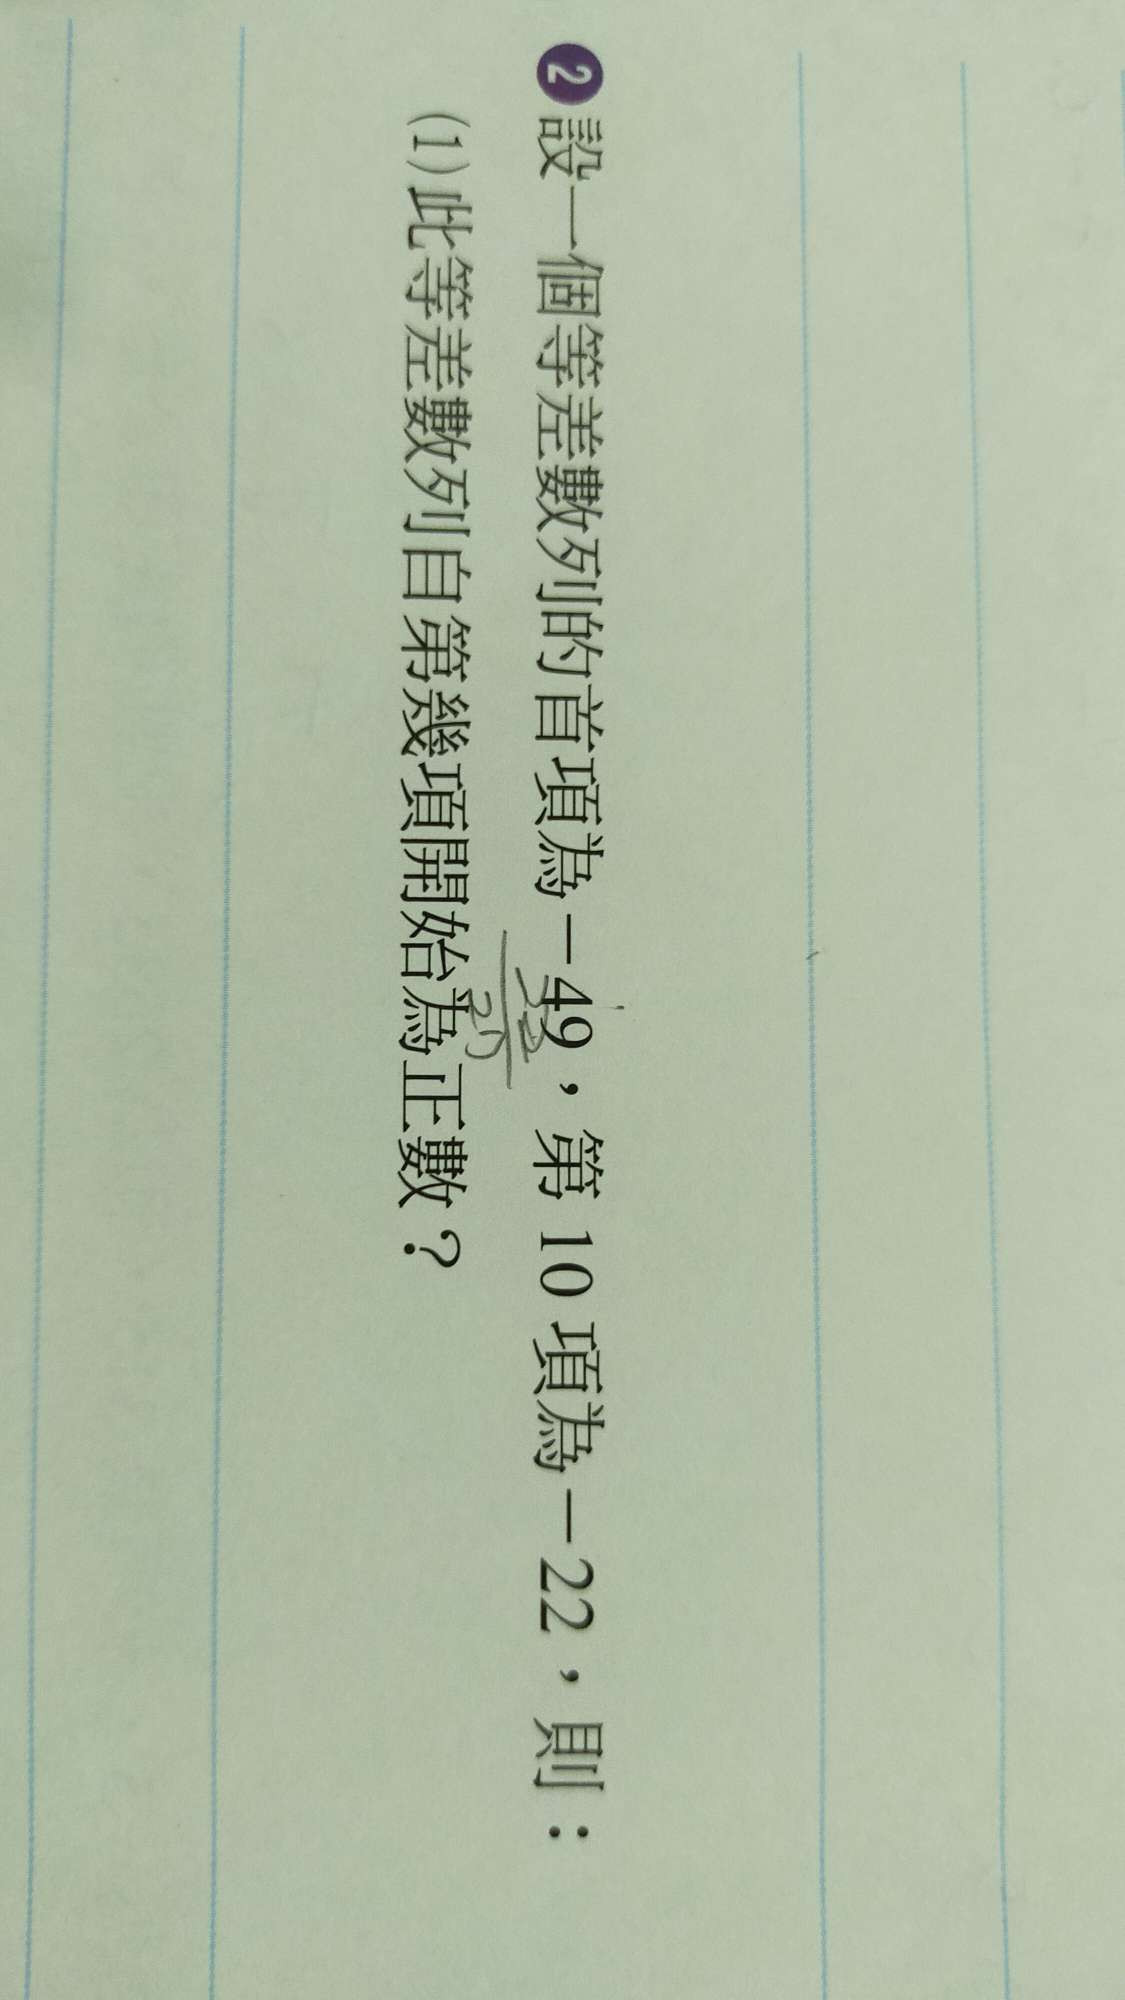 2 設一個等差數列的首項為－49，第 10 項為－22，則：
(1)此等差數列自第幾項開始為正數？